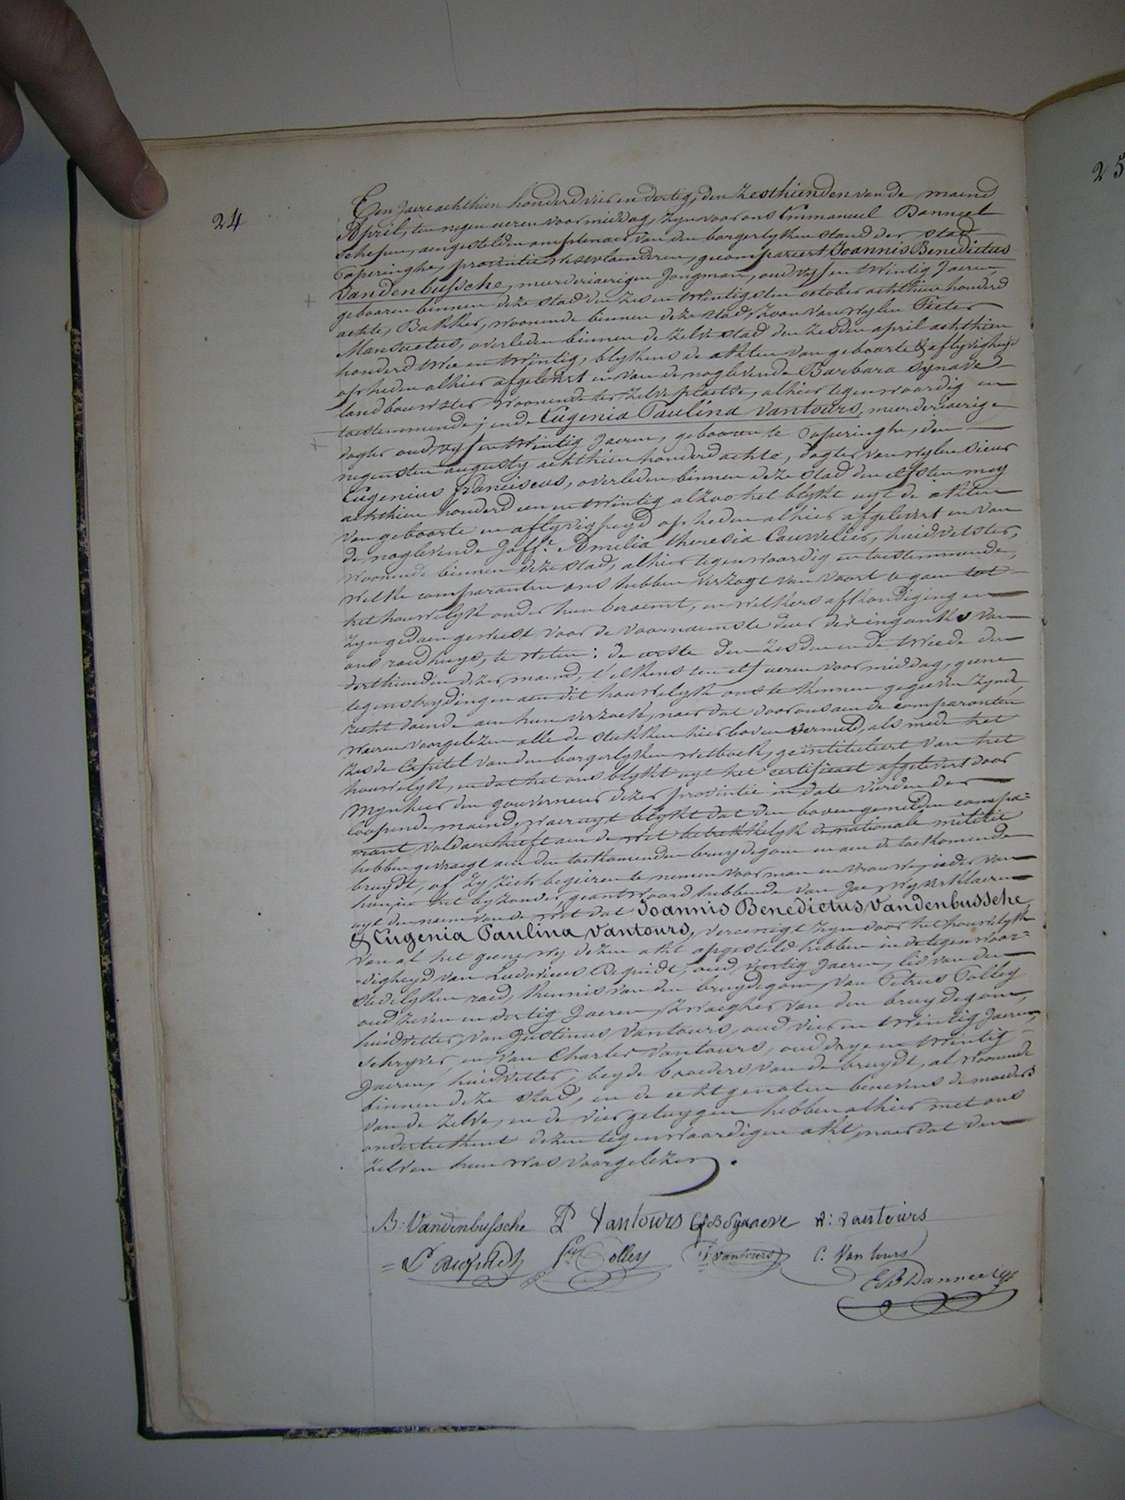 24
25
Een Jaere achthien honderd vier en dertig, den zesthienden van de maend
April, ten negen ueren voormiddag, zyn voor ons Emmanuel Banneel
Schepen, aengestelden amptenaer van den borgerlyken stand der stad
Poperinghe, provintie Westvlaenderen, gecompareert Joannis Benedictus
Vandenbussche, meerderjaerigen Jongman, oud vyf en twintig Jaeren,
gebooren binnen deze stad den zes en twintigsten october achthien honderd
achte, Bakker, woonende binnen deze stad, zoon van wylen Pieter
Mansuetus, overleden binnen de zelve stad den zesden april achthien
honderd twee en twintig, blykens de akten van geboorte & aflyvigheyd
op heden alhier afgelevert en van de naglevende Barbara Synave
landbouwster woonende ter zelve plaetse, alhier tegenwoordig en
toestemmende; ende Eugenia Paulina Vantours, meerderjaerige
dogter oud vyf en twintig Jaeren, gebooren te Poperinghe, den
negensten augusty achthien honderd achte, dogter van wylen Sieur
Eugenius Franciscus, overleden binnen deze stad den elfsten mey
achthien honderd een en twintig alzoo het blykt uyt de akten
van geboorte en aflyvigheyd op heden alhier afgelevert en van
de naglevende Joffe. Amelia Theresia Cauwelier, huidvetster,
woonende binnen deze stad, alhier tegenwoordig en toestemmende,
Welke comparanten ons hebben verzogt van voort te gaen tot
het houwelyk onder hun beraemt, en welkers afkondigingen
zyn gedaen geweest voor de voornaemste deur der ingank van
ons raedhuys, te weten: de eerste den zesden en de tweede den
derthienden dezer maend, t'elkens ten elf ueren voormiddag, geene
tegenstrydingen aen dit houwelyk ons te kennen gegeven zynde
recht doende aen hun verzoek, naer dat door ons aen de comparanten
waeren voorgelezen alle de stukken hierboven vermeld, als mede het
zesde Capittel van den borgerlyken wetboek, geïntituleert van het
houwelyk, en dat het ons blykt uyt het certificaet afgelevert door
Mynheer den gouverneur dezer provintie in date vierden der
loopende maend, waer uyt blykt dat den bovengemelden compa-
rant voldaen heeft aen de wet betrekkelyk de nationale militie
hebben gevraegt aen den toekomenden bruydegom en aen de toekomende
bruydt, of zy zich begeiren te nemen voor man en vrouw, ieder van
hun in het byzonder geantwoord hebbende van Jae, wy verklaeren
uyt den naem van de wet dat Joannis Benedictus Vandenbussche
& Eugenia Paulina Vantours, vereenigt zyn door het houwelyk
Van al het geene wy dezen akt opgesteld hebben in de tegenwoor-
digheyd van Ludovicus Dequidt, oud veertig Jaeren, lid van den
stedelyken raed, kennis van den bruydegom, van Petrus Tolley
oud zeven en dertig Jaeren, zwaeger van den bruydegom,
huidvetter, van Justinus Vantours, oud vier en twintig Jaeren,
Schryver, en van Charles Vantours, oud drye en twintig
Jaeren, huidvetter, beyde broeders van de bruydt, al woonende
binnen deze stad, en de echtgenoten benevens de moeders
van de zelve, en de vier getuygen hebben alhier met ons
onderteekent dezen tegenwoordigen akt, naer dat den
zelven hun was voorgelezen.
B: Vandenbussche P Vantours B Synaeve vantours
L Dequidt Pr Tolley J vantours C. Van tours
E B Banneel